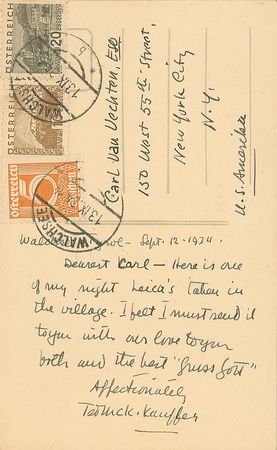 ÖSTERREICH
20
WALCHSEE
13.IX.34
ÖSTERREICH
Österreich
5
WALCHSEE
13.IX.34
Carl Van Vechten, Esq
150 West 55th Street,
New York City
N.Y.
U.S. Amerika
Sept. 12-1934.
Dearest Carl – Here is one
of my night Leica's taken in
the village. I felt I must send it
to you with our love to you
both and the best "Gruss Gott"
Affectionately
Ted McK. Kauffer